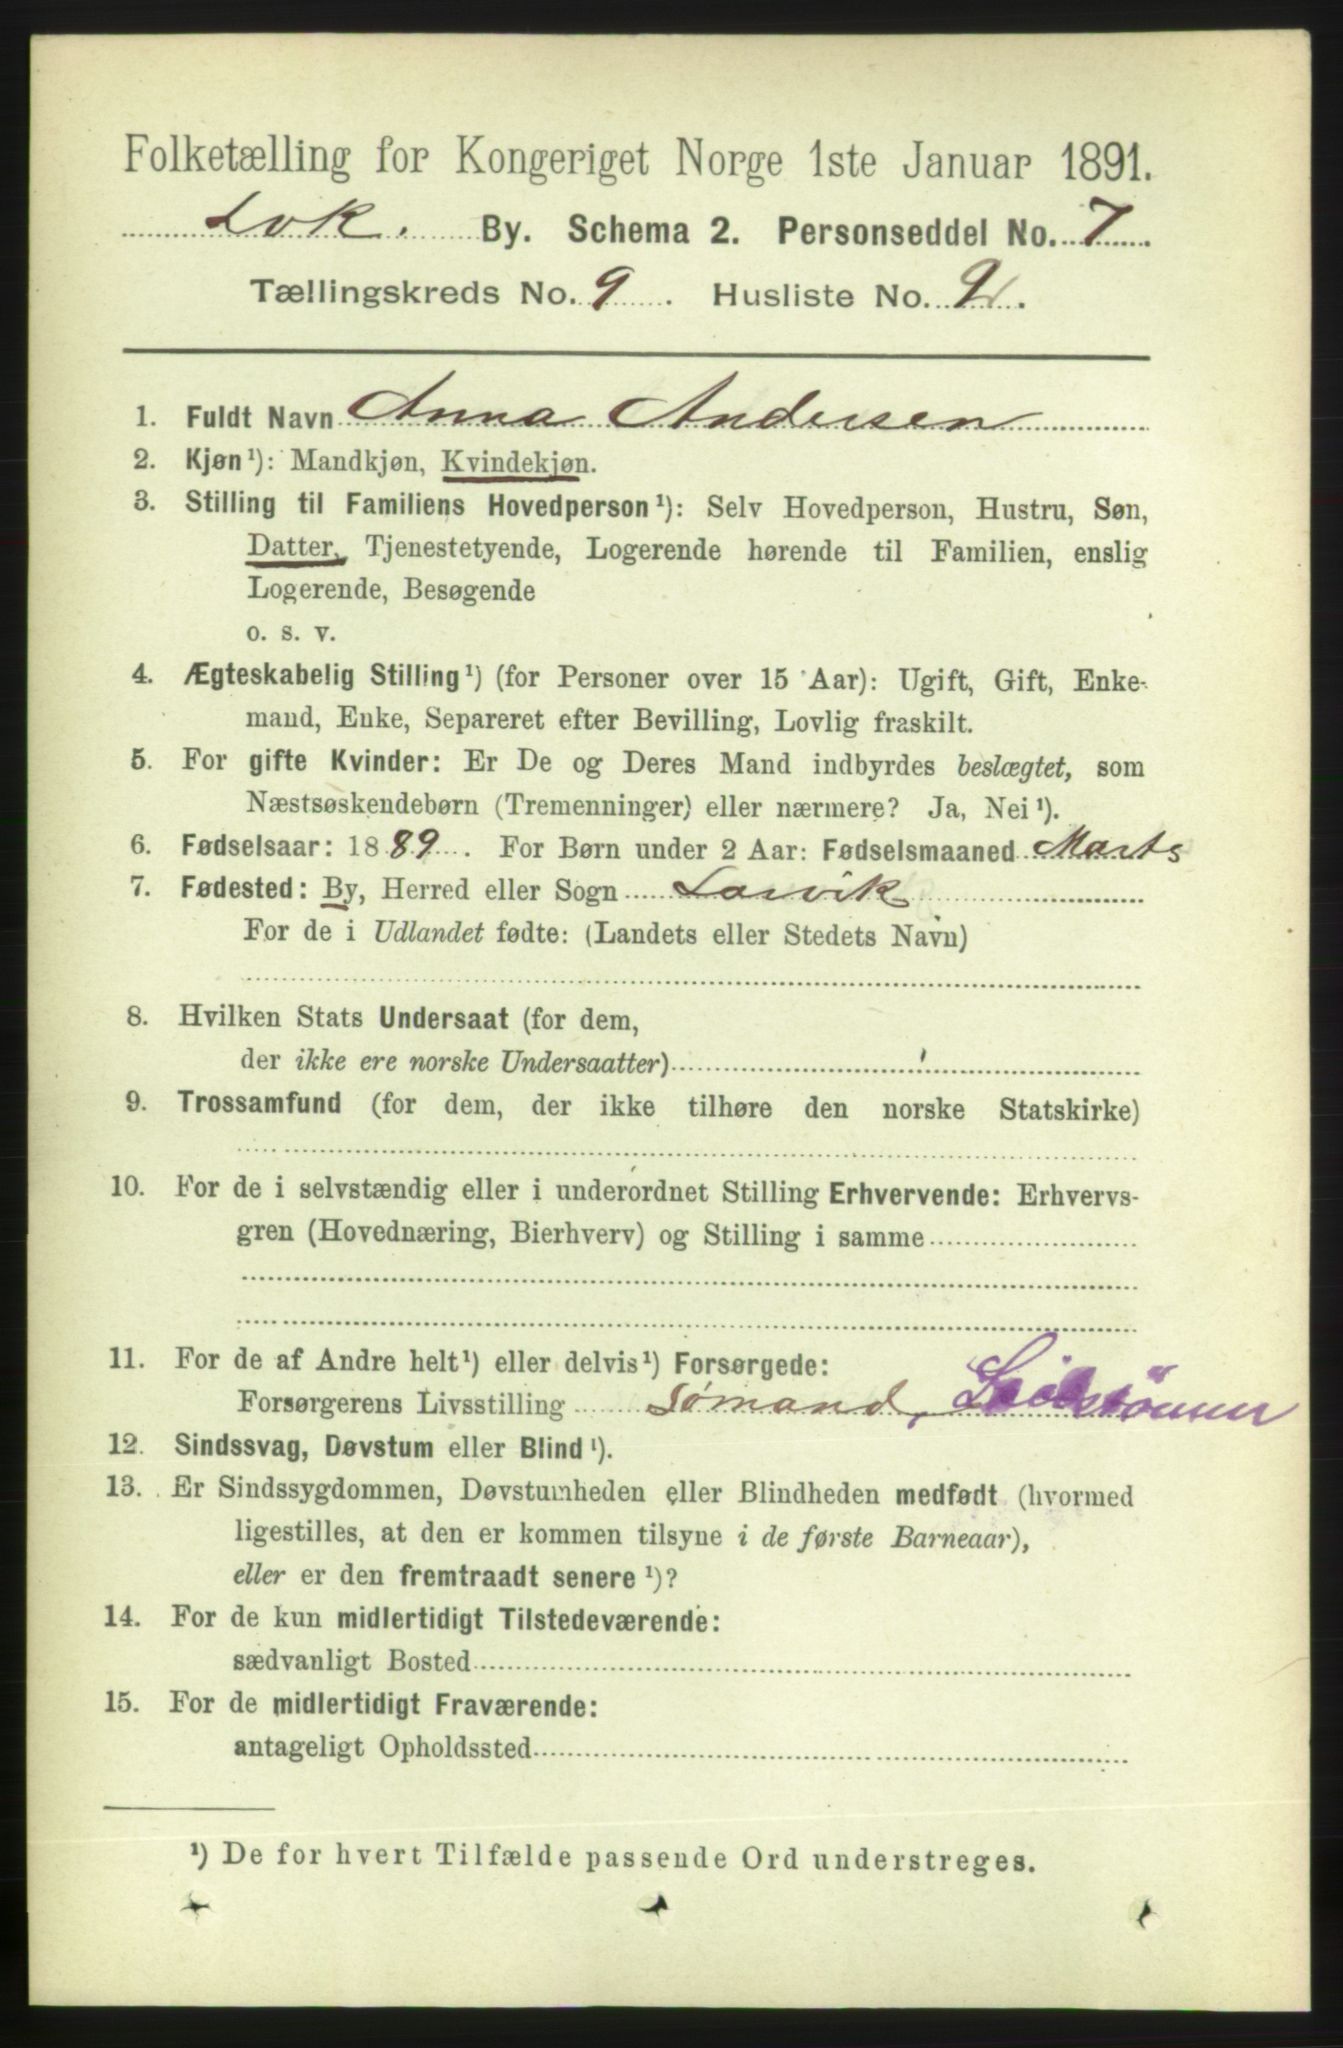 Folketælling for Kongeriget Norge 1ste Januar 1891.
Lvk. By. Schema 2. Personseddel No. 7
Tællingskreds No. 9. Husliste No. 9.
1. Fuldt Navn Anna Andersen
2. Kjøn ¹): Mandkjøn, Kvindekjøn.
3. Stilling til Familiens Hovedperson ¹): Selv Hovedperson, Hustru, Søn,
Datter, Tjenestetyende, Logerende hørende til Familien, enslig
Logerende, Besøgende
o. s. v.
4. Ægteskabelig Stilling ¹) (for Personer over 15 Aar): Ugift, Gift, Enke-
mand, Enke, Separeret efter Bevilling, Lovlig fraskilt.
5. For gifte Kvinder: Er De og Deres Mand indbyrdes beslægtet, som
Næstsøskendebørn (Tremenninger) eller nærmere? Ja, Nei ¹).
6. Fødselsaar: 1889. For Børn under 2 Aar: Fødselsmaaned Marts
7. Fødested: By, Herred eller Sogn Larvik
For de i Udlandet fødte: (Landets eller Stedets Navn)
8. Hvilken Stats Undersaat (for dem,
der ikke ere norske Undersaatter)
9. Trossamfund (for dem, der ikke tilhøre den norske Statskirke)
10. For de i selvstændig eller i underordnet Stilling Erhvervende: Erhvervs-
gren (Hovednæring, Bierhverv) og Stilling i samme
11. For de af Andre helt ¹) eller delvis ¹) Forsørgede:
Forsørgerens Livsstilling Sømand,
12. Sindssvag, Døvstum eller Blind ¹).
13. Er Sindssygdommen, Døvstumheden eller Blindheden medfødt (hvormed
ligestilles, at den er kommen tilsyne i de første Barneaar),
eller er den fremtraadt senere ¹)?
14. For de kun midlertidigt Tilstedeværende:
sædvanligt Bosted
15. For de midlertidigt Fraværende:
antageligt Opholdssted
¹) De for hvert Tilfælde passende Ord understreges.